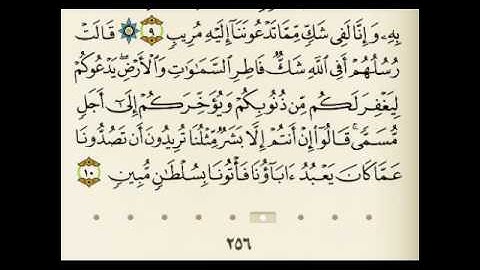 بِهِۦ وَإِنَّا لَفِى شَكٍّ مِّمَّا تَدْعُونَنَآ إِلَيْهِ مُرِيبٍ ٩ ۞ قَالَتْ
رُسُلُهُمْ أَفِى ٱللَّهِ شَكٌّ فَاطِرِ ٱلسَّمَٰوَٰتِ وَٱلْأَرْضِ ۖ يَدْعُوكُمْ
لِيَغْفِرَ لَكُم مِّن ذُنُوبِكُمْ وَيُؤَخِّرَكُمْ إِلَىٰٓ أَجَلٍ
مُّسَمًّى ۚ قَالُوٓا۟ إِنْ أَنتُمْ إِلَّا بَشَرٌ مِّثْلُنَا تُرِيدُونَ أَن تَصُدُّونَا
عَمَّا كَانَ يَعْبُدُ ءَابَآؤُنَا فَأْتُونَا بِسُلْطَٰنٍ مُّبِينٍ ١٠
٢٥٦